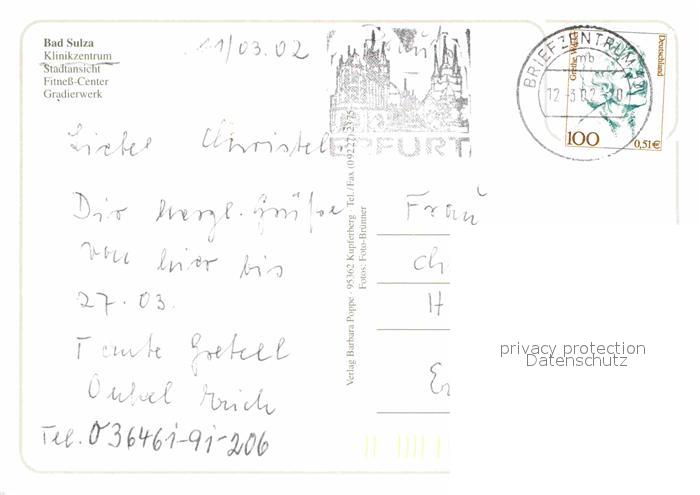 Bad Sulza
Klinikzentrum
Stadtansicht
Fitneß-Center
Gradierwerk
11/03.02
ERFURT
BRIEFZENTRUM
mb
12.-3.02-20
Grethe Weiser
Deutschland
100
0,51€
Liebe Christel
Dir herzl. Grüße
von hier bis
27.03.
Tante Gretell
Onkel Erich
Tel. 036461-91-206
Verlag Barbara Poppe · 95362 Kupferberg · Tel./Fax (09227) 2375
Fotos: Foto-Brünner
Frau
Ch
H
privacy protection
Datenschutz